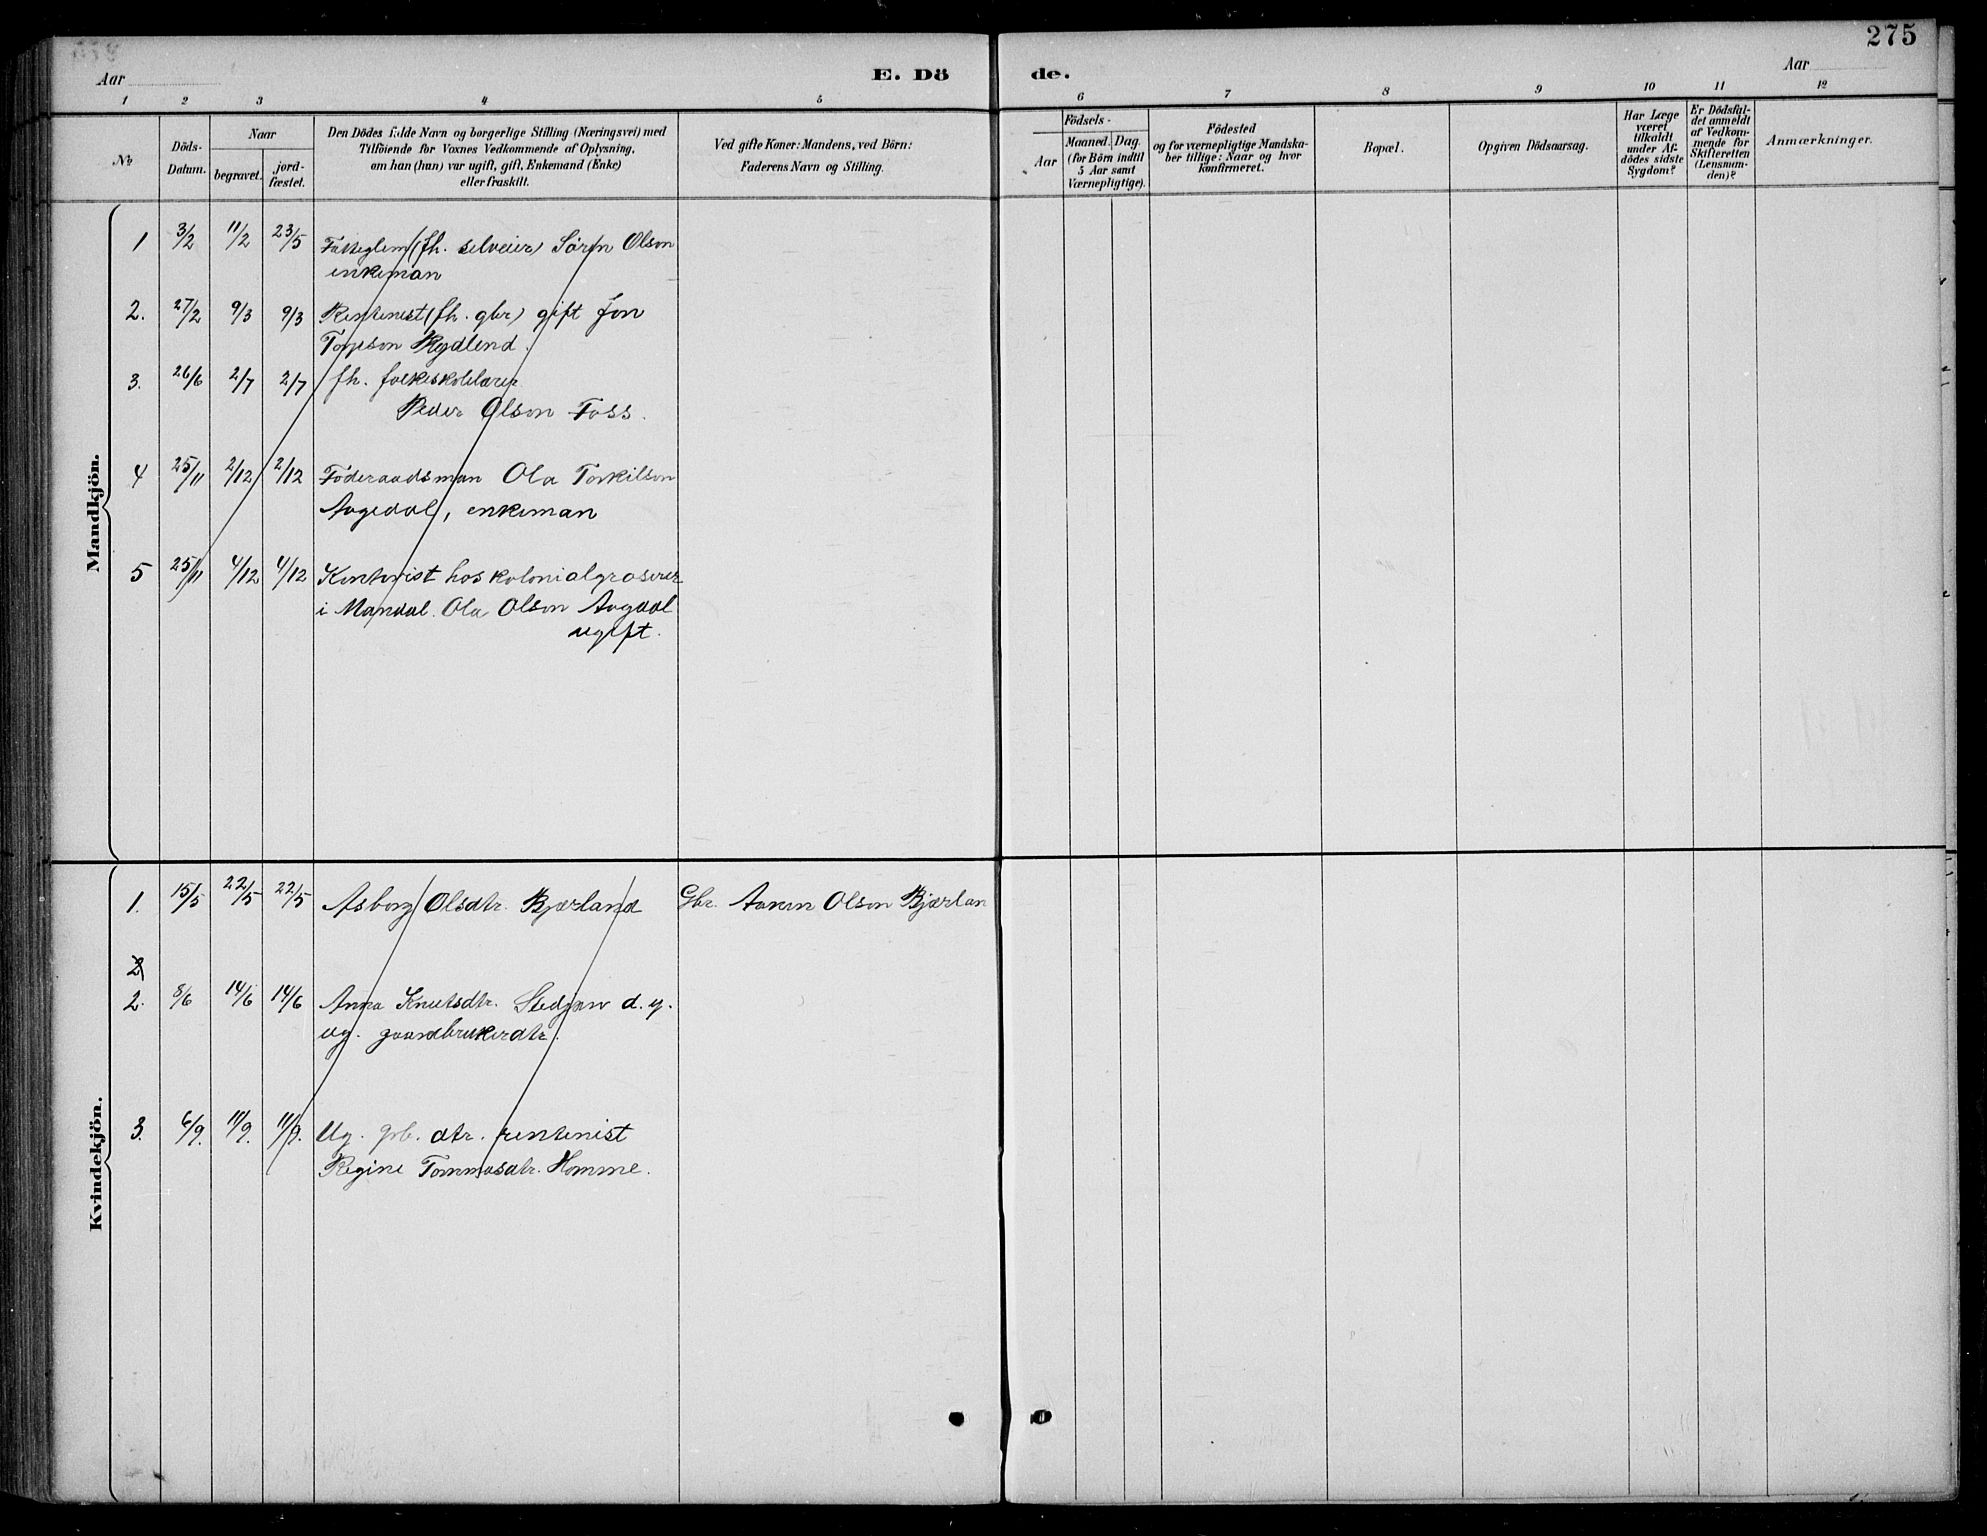 275
Aar
E. Dö de.
Aar
1 2 3 4 5 6 7 8 9 10 11 12
No
Döds-
Datum.
Naar
begravet.
jord-
fæstet.
Den Dödes fulde Navn og borgerlige Stilling (Næringsvei) med
Tilföiende for Voxnes Vedkommende af Oplysning,
om han (hun) var ugift, gift, Enkemand (Enke)
eller fraskilt.
Ved gifte Koner: Mandens, ved Börn:
Faderens Navn og Stilling.
Födsels-
Aar
Maaned. Dag.
(for Börn indtil
5 Aar samt
Værnepligtige).
Födested
og for værnepligtige Mandska-
ber tillige: Naar og hvor
konfirmeret.
Bopæl.
Opgiven Dödsaarsag.
Har Læge
været
tilkaldt
under Af-
dödes sidste
Sygdom?
Er Dödsfal-
det anmeldt
af Vedkom-
mende for
Skifteretten
(Lensman-
den)?
Anmærkninger.
Mandkjön.
1 3/2 11/2 23/5 (fh. selveier) Sörin Olson
enkeman
2. 27/2 9/3 9/3 Rentenist (fh. gbr) gift Jon
Rydlend.
3. 26/6 2/7 2/7 fh. folkeskolelærer
Peder Olson Foss.
4 25/11 2/12 2/12 Föderaadsman Ola Torkilson
Aagedal, enkeman
5 25/11 4/12 4/12 Kontorist hos kolonialgroserer
i Mandal. Ola Olson Aagdal
ugift.
Kvindekjön.
1. 15/5 22/5 22/5 Asborg Olsdtr. Bjærland Gbr. Aanen Olson Bjærlan
2
2. 8/6 14/6 14/6 Anna Knutsdtr. Stedjan d. y.
ug. gaardbrukerdtr.
3. 6/9. 11/9. 11/9. Ug. grb. dtr. rentenist
Regine Tommasdtr. Homme.